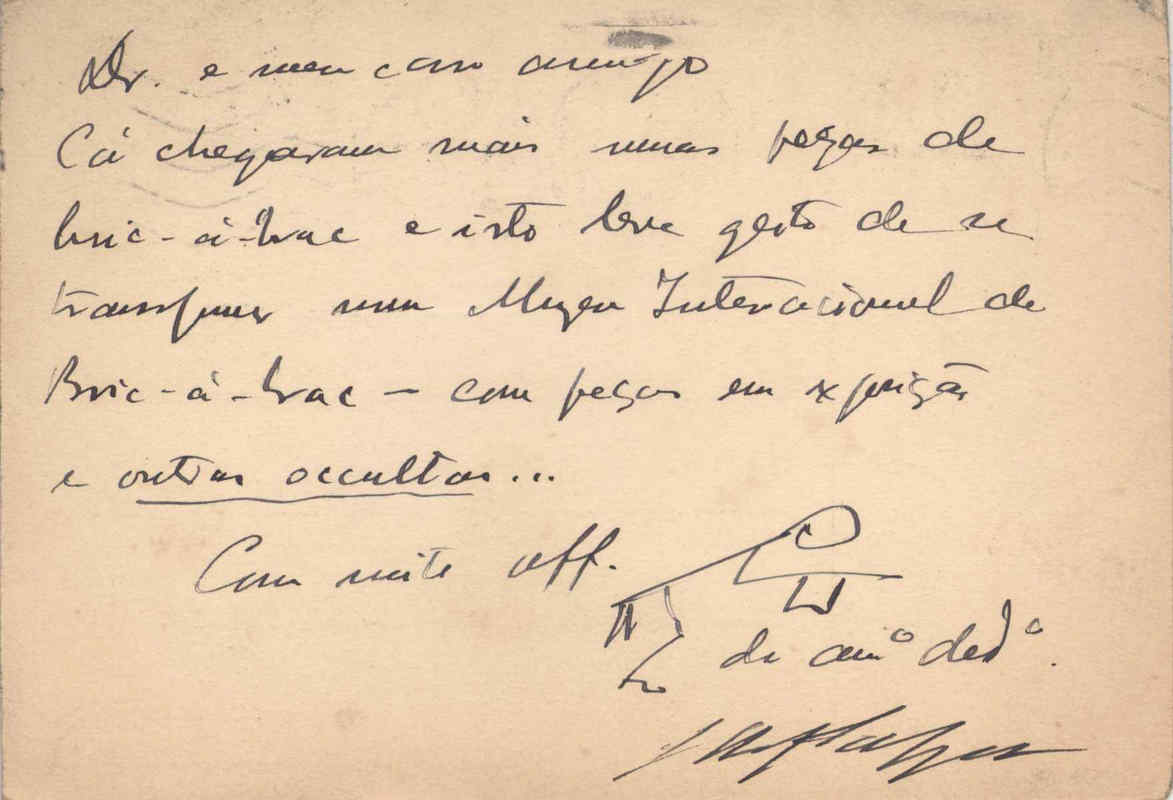 Dr. e meu caro amigo
Cá chegaram mais umas peças de
bric-à-brac e isto leva geito de se
transformar num Muzeu Internacional de
Bric-à-brac — com peças em exposição
e outras occultas...
Com muito aff.
do am.º ded.º